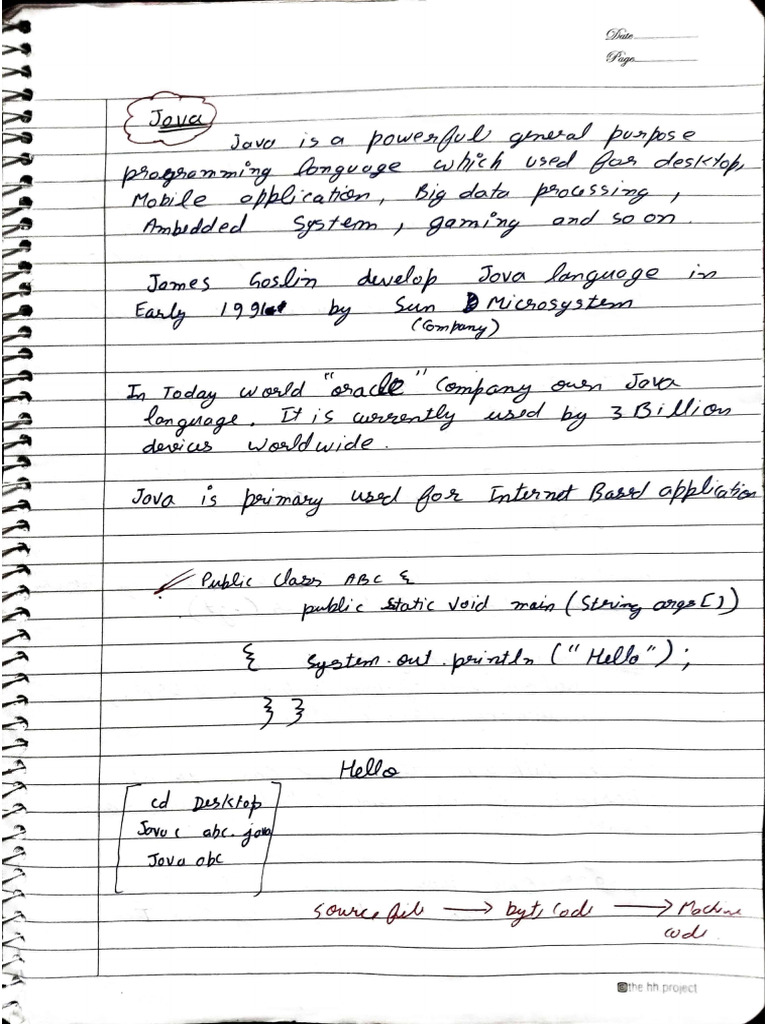 Date
Page
Java
Java is a powerful general purpose
programming language which used for desktop,
Mobile application, Big data processing,
Ambedded System, gaming and so on.
James Goslin develop Java language in
Early 1991 by Sun Microsystem
(Company)
In Today world "oracle" Company own Java
language. It is currently used by 3 Billion
devices worldwide.
Java is primary used for Internet Based application
Public Class ABC {
public static void main (String args[])
{ System.out.println ("Hello");
} }
Hello
cd Desktop
Javac abc.java
Java abc
source file → byte code → Machine
code
the hh project